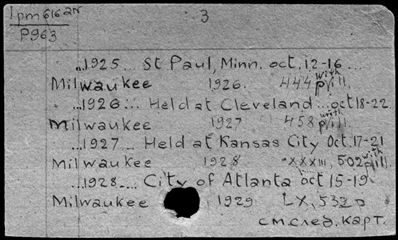 1pm616ar 3
P963
...1925... St Paul, Minn. oct. 12-16...
with
Milwaukee 1926. 444 p. ill.
...1926... Held at Cleveland... oct 18-22.
with
Milwaukee 1927 458 p. ill.
...1927... Held at Kansas City Oct. 17-21
with
Milwaukee 1928 XXXIII, 502 p. ill.
...1928... City of Atlanta oct 15-19.
Milwaukee 1929 LX, 532 p
см. след. карт.